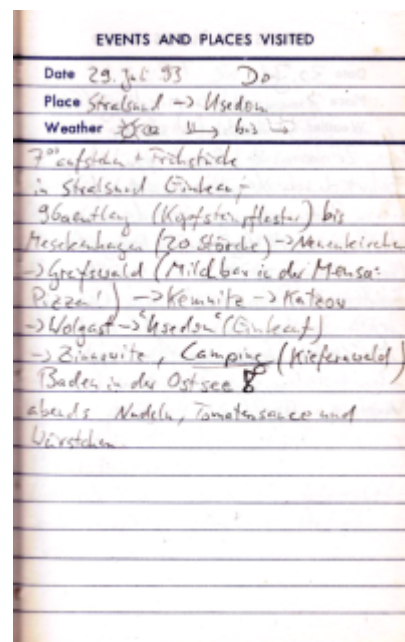 EVENTS AND PLACES VISITED
Date 29. Juli 93 Do
Place Stralsund -> Usedom
Weather bis
7⁰⁰ aufstehen + Frühstück
in Stralsund Einkauf
96 entlang (Kopfsteinpflaster) bis
Mesekenhagen (20 Störche) -> Neuenkirchen
-> Greifswald (Milchbar in der Mensa:
Pizza!) -> Kemnitz -> Katzow
-> Wolgast -> "Usedom" (Einkauf)
-> Zinnowitz, Camping (Kiefernwald)
Baden in der Ostsee
abends Nudeln, Tomatensauce und
Würstchen